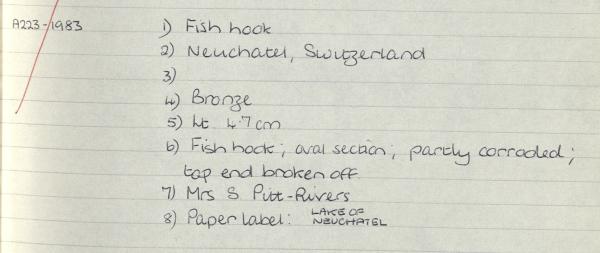 A223-1983 1) Fish hook
2) Neuchatel, Switzerland
3)
4) Bronze
5) Ht 4.7cm
6) Fish hook; oval section; partly corroded;
top end broken off.
7) Mrs S Pitt-Rivers
8) Paper label: LAKE OF
NEUCHATEL